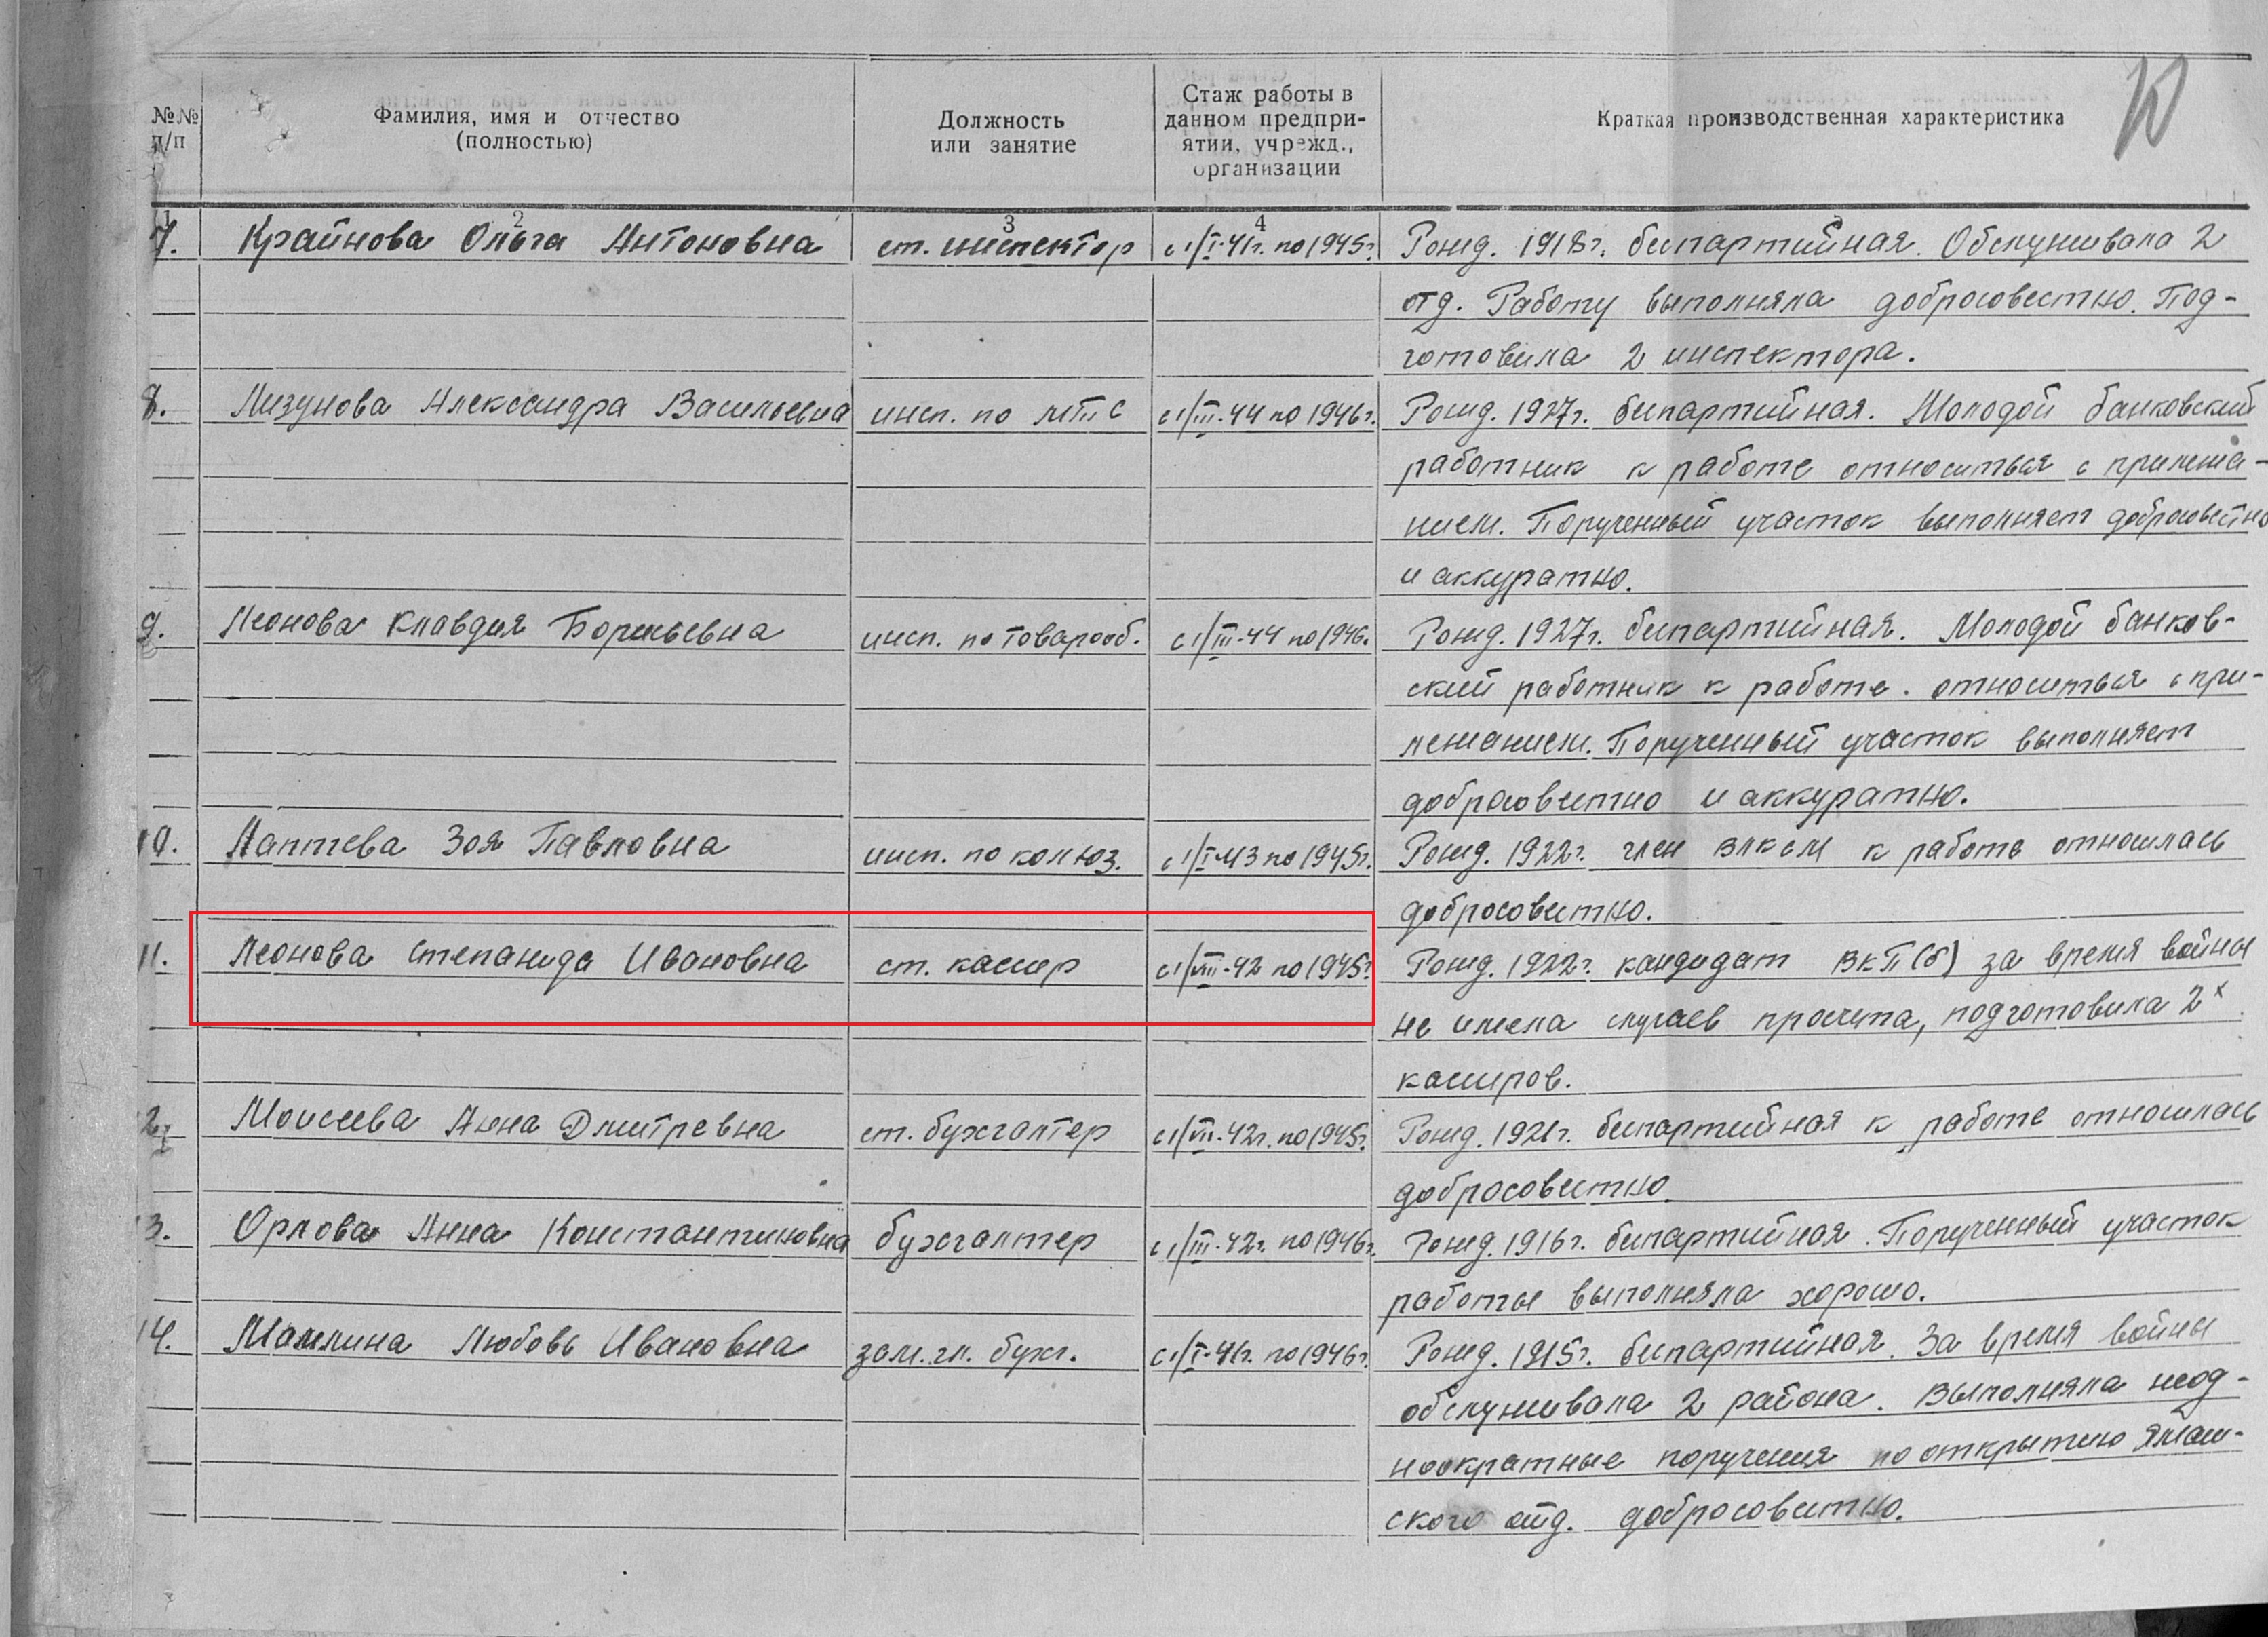 10
№№ п/п
Фамилия, имя и отчество (полностью)
Должность или занятие
Стаж работы в данном предприятии, учрежд., организации
Краткая производственная характеристика
1 2 3 4
7. Крайнова Ольга Антоновна ст. инспектор с 1/I-41г. по 1945г. Рожд. 1918г. беспартийная. Обслуживала 2
отд. Работу выполняла добросовестно. Под-
готовила 2 инспектора.
8. Лизунова Александра Васильевна инсп. по мтс с 1/III-44 по 1946г. Рожд. 1927г. беспартийная. Молодой банковский
работник к работе относиться с прилежа-
нием. Порученный участок выполняет добросовестно
и аккуратно.
9. Леонова Клавдия Борисьевна инсп. по товарооб. с 1/III-44 по 1946г. Рожд. 1927г. беспартийная. Молодой банков-
ский работник к работе. относиться с при-
лежанием. Порученный участок выполняет
добросовестно и аккуратно.
10. Лаптева Зоя Павловна инсп. по колхоз. с 1/I-43 по 1945г. Рожд. 1922г. член ВЛКСМ к работе относилась
добросовестно.
11. Леонова Степанида Ивановна ст. кассир с 1/VIII-42 по 1945г. Рожд. 1922г. кандидат ВКП(б) за время войны
не имела случаев просчета, подготовила 2х
касиров.
12. Моисеева Анна Дмитревна ст. бухгалтер с 1/VII-42г. по 1945г. Рожд. 1921г. беспартийная к работе относилась
добросовестно.
13. Орлова Анна Константиновна бухгалтер с 1/III-42г. по 1946г. Рожд. 1916г. беспартийная. Порученный участок
работы выполняла хорошо.
14. Мамлина Любовь Ивановна зам. гл. бухг. с 1/I-41г. по 1946г. Рожд. 1915г. беспартийная. За время войны
обслуживала 2 района. Выполняла неод-
нократные поручения по открытию Ямаш-
ского отд. добросовестно.